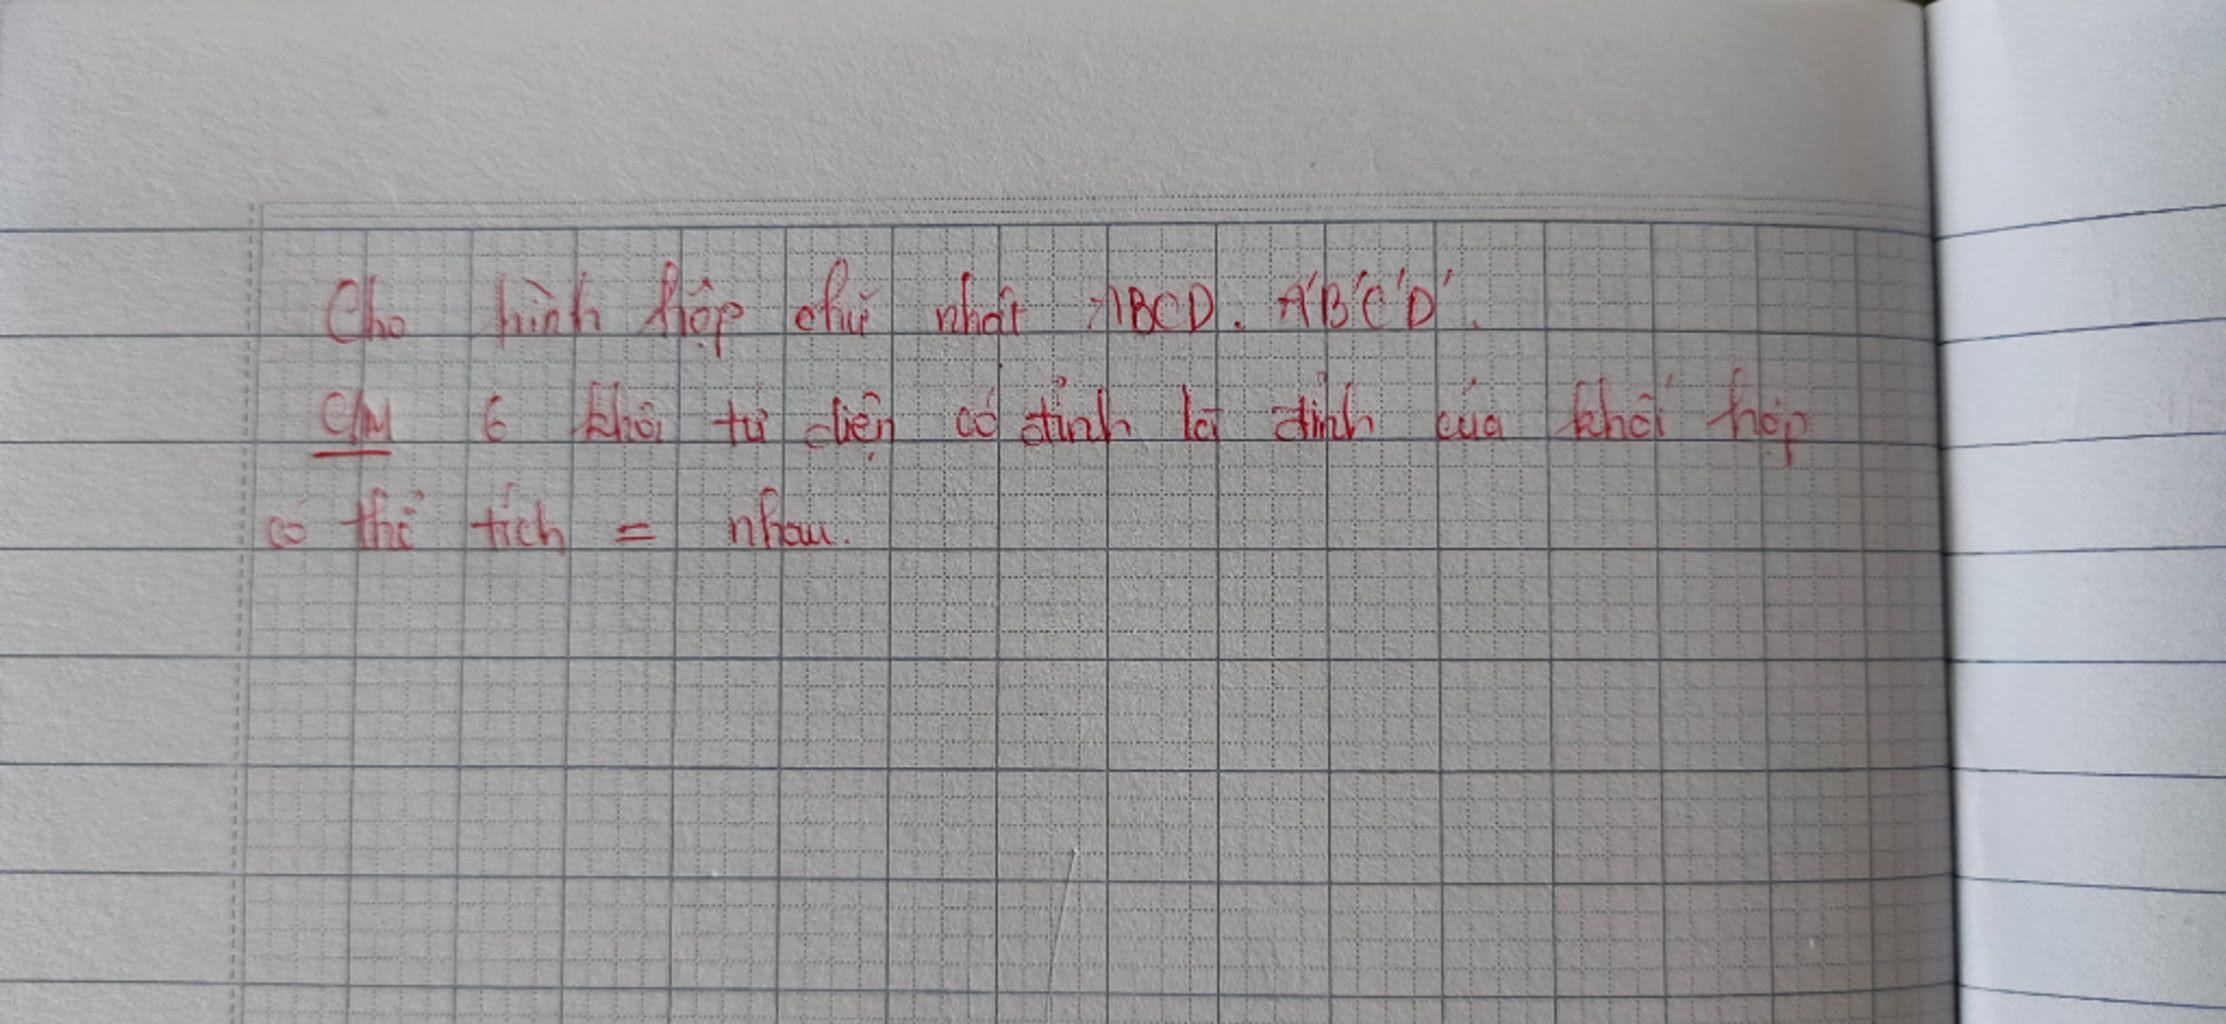 Cho hình hộp chữ nhật ABCD. A'B'C'D'.
CM 6 khối tứ diện có đỉnh là đỉnh của khối hộp
có thể tích = nhau.